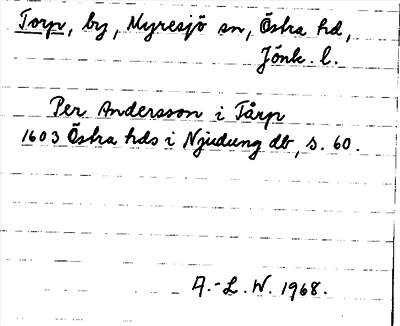 Torp, by, Myresjö sn, Östra hd,
Jönk. l.
Per Andersson i Tårp
1603 Östra hds i Njudung db, s. 60.
A.-L. W. 1968.